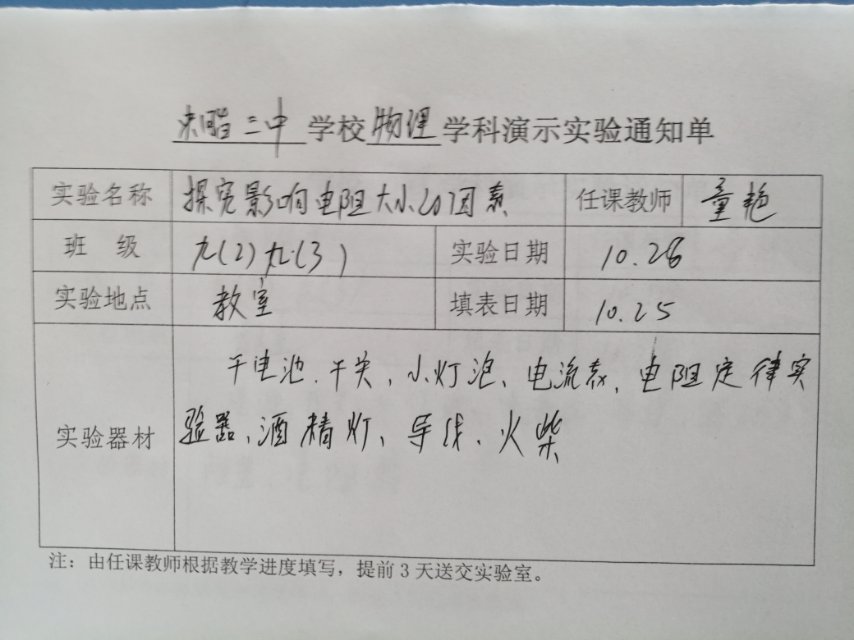 米脂三中学校物理学科演示实验通知单
实验名称 探究影响电阻大小的因素 任课教师 童艳
班 级 九(2) 九(3) 实验日期 10.28
实验地点 教室 填表日期 10.25
干电池、开关、小灯泡、电流表、电阻定律实
实验器材 验器、酒精灯、导线、火柴
注：由任课教师根据教学进度填写，提前 3 天送交实验室。